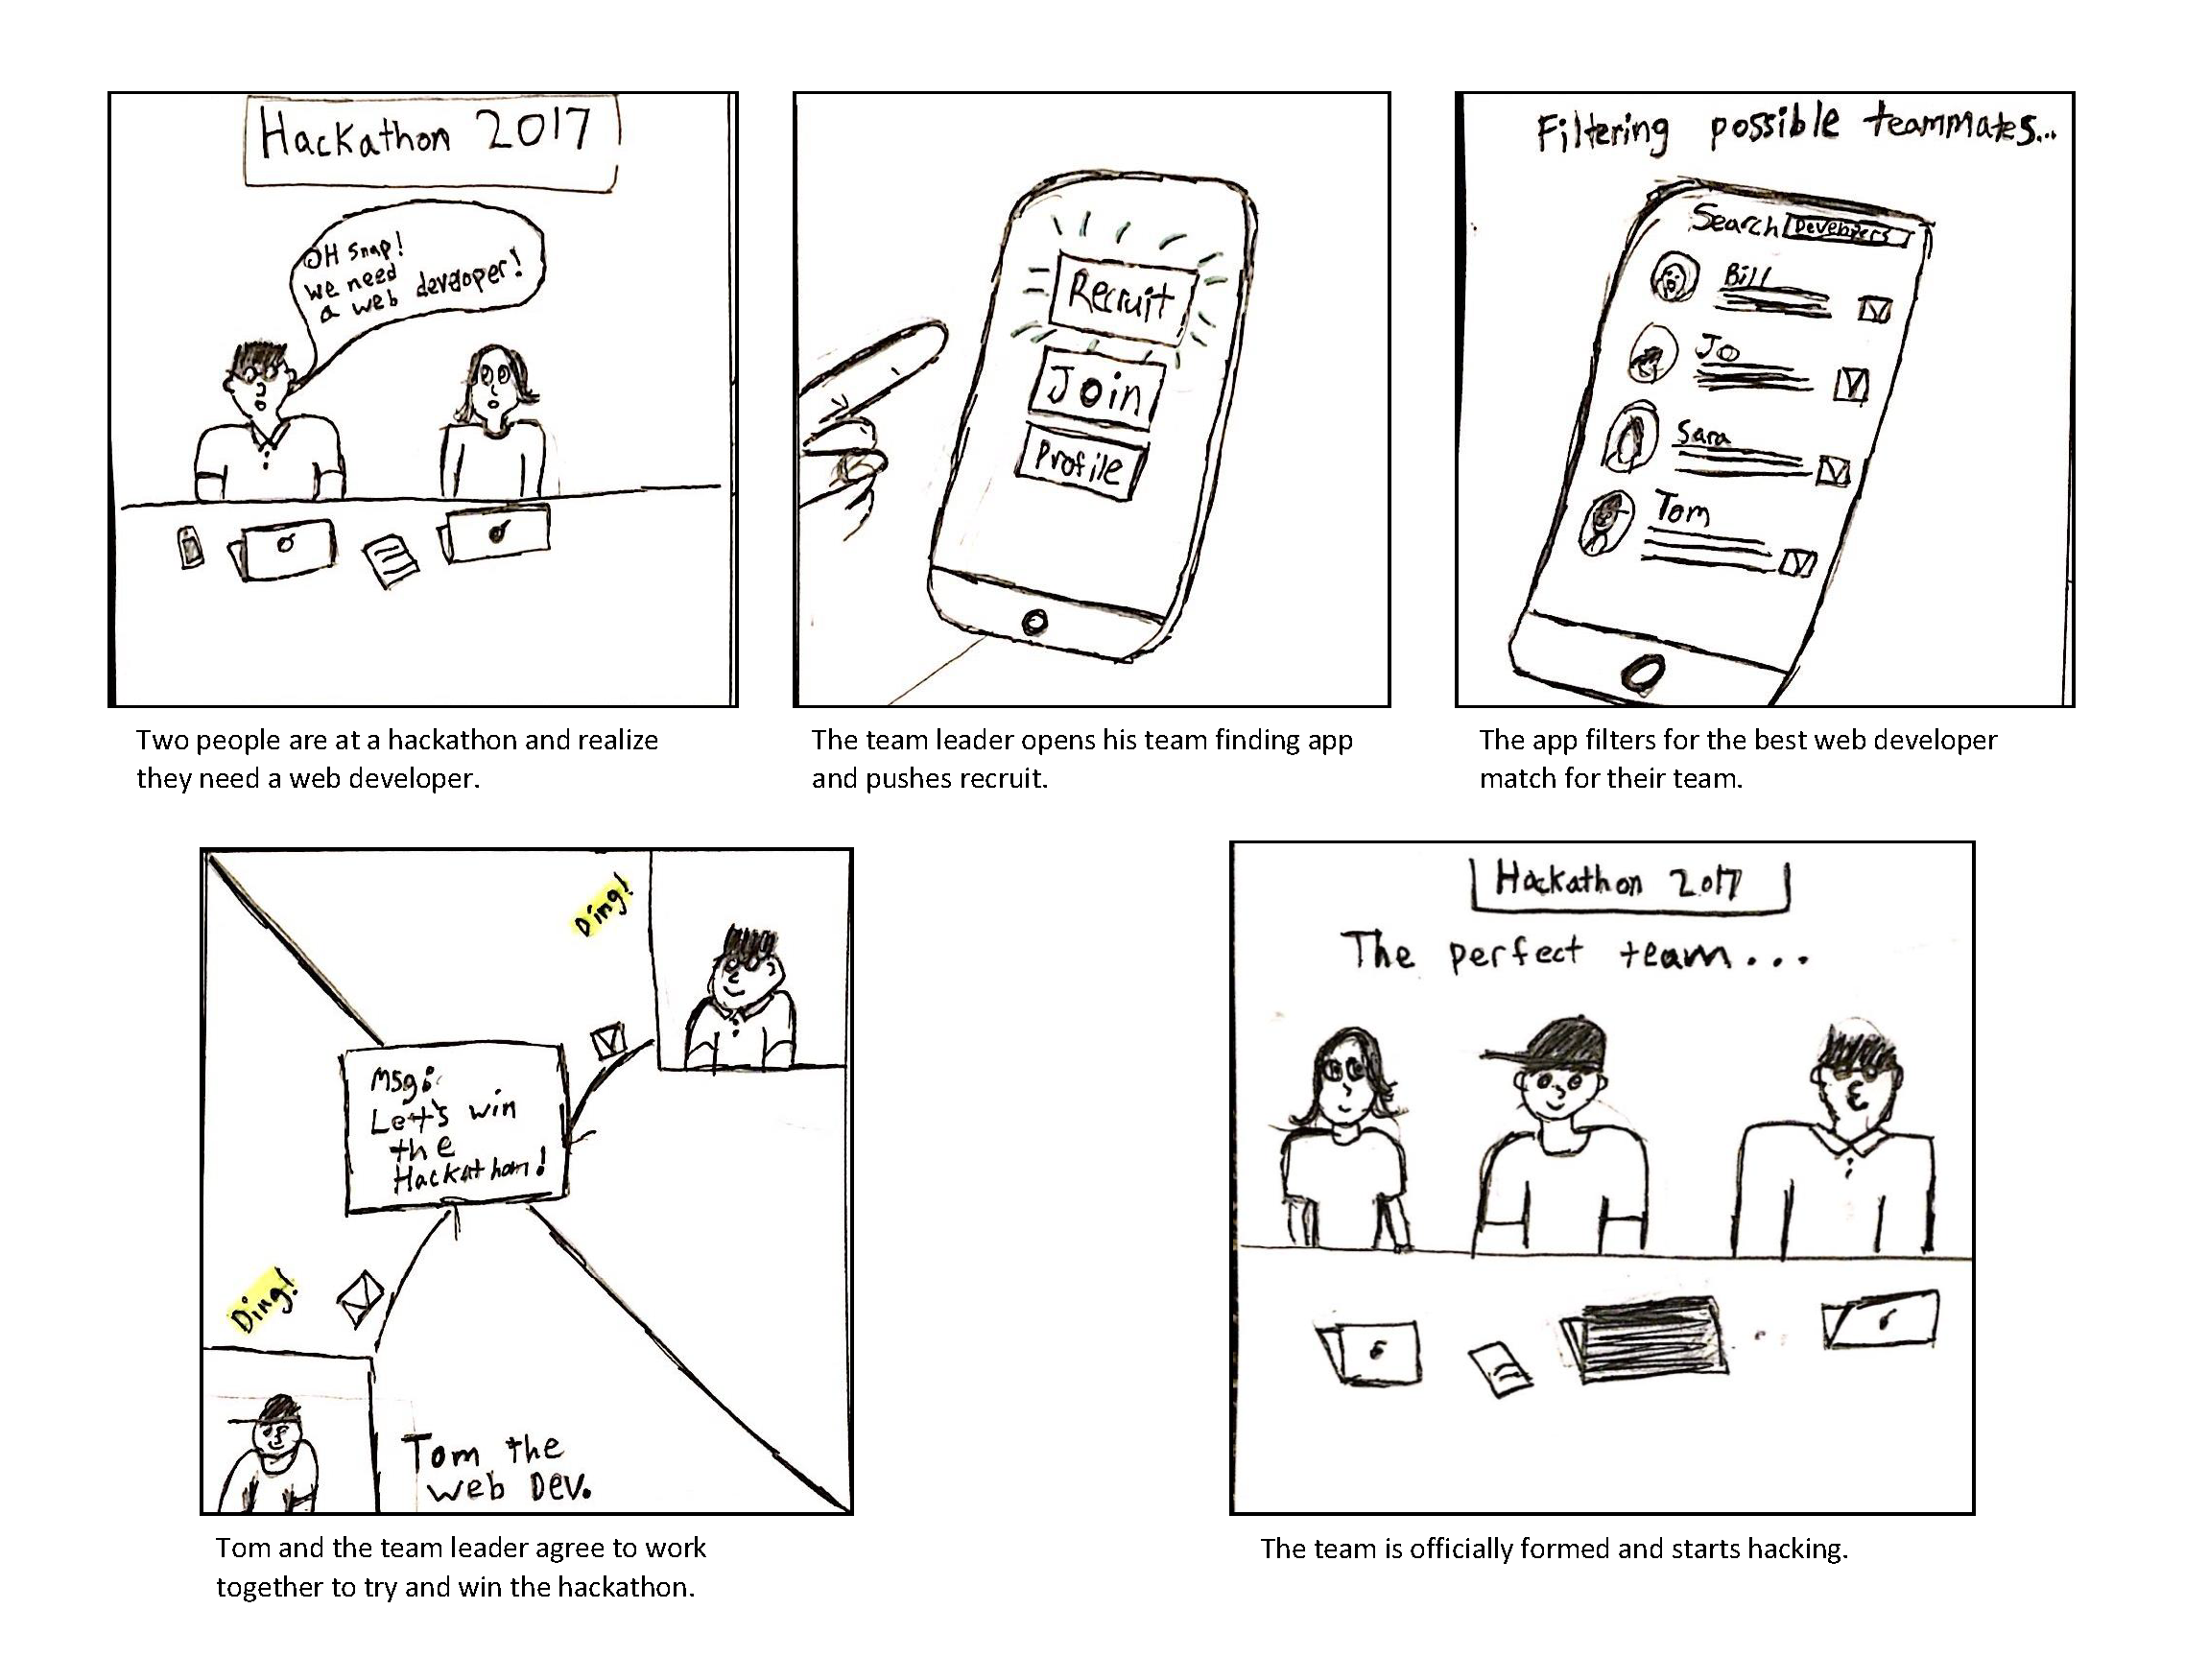 Hackathon 2017
OH snap!
we need
a web developer!
Two people are at a hackathon and realize
they need a web developer.
Recruit
Join
Profile
The team leader opens his team finding app
and pushes recruit.
Filtering possible teammates...
Search Developers
Bill
Jo
Sara
Tom
The app filters for the best web developer
match for their team.
Ding!
Msg:
Let's win
the
Hackathon!
Ding!
Tom the
web Dev.
Tom and the team leader agree to work
together to try and win the hackathon.
Hackathon 2017
The perfect team...
The team is officially formed and starts hacking.